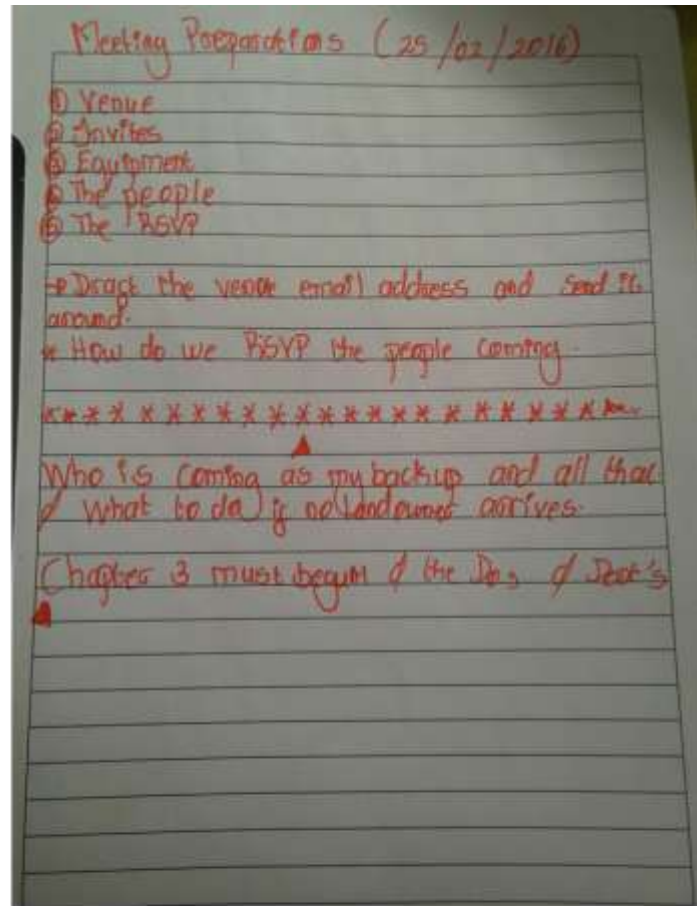 Meeting Preparations (25/02/2016)
① Venue
② Invites
③ Equipment
④ The people
⑤ The RSVP
→ the venue email address and send it
around.
* How do we RSVP the people coming.
* * * * * * * * * * * * * * * * * * * * * * *
Who is coming as my backup and all that
& What to do if no landowner arrives.
Chapter 3 must begin & the Do's & Dont's